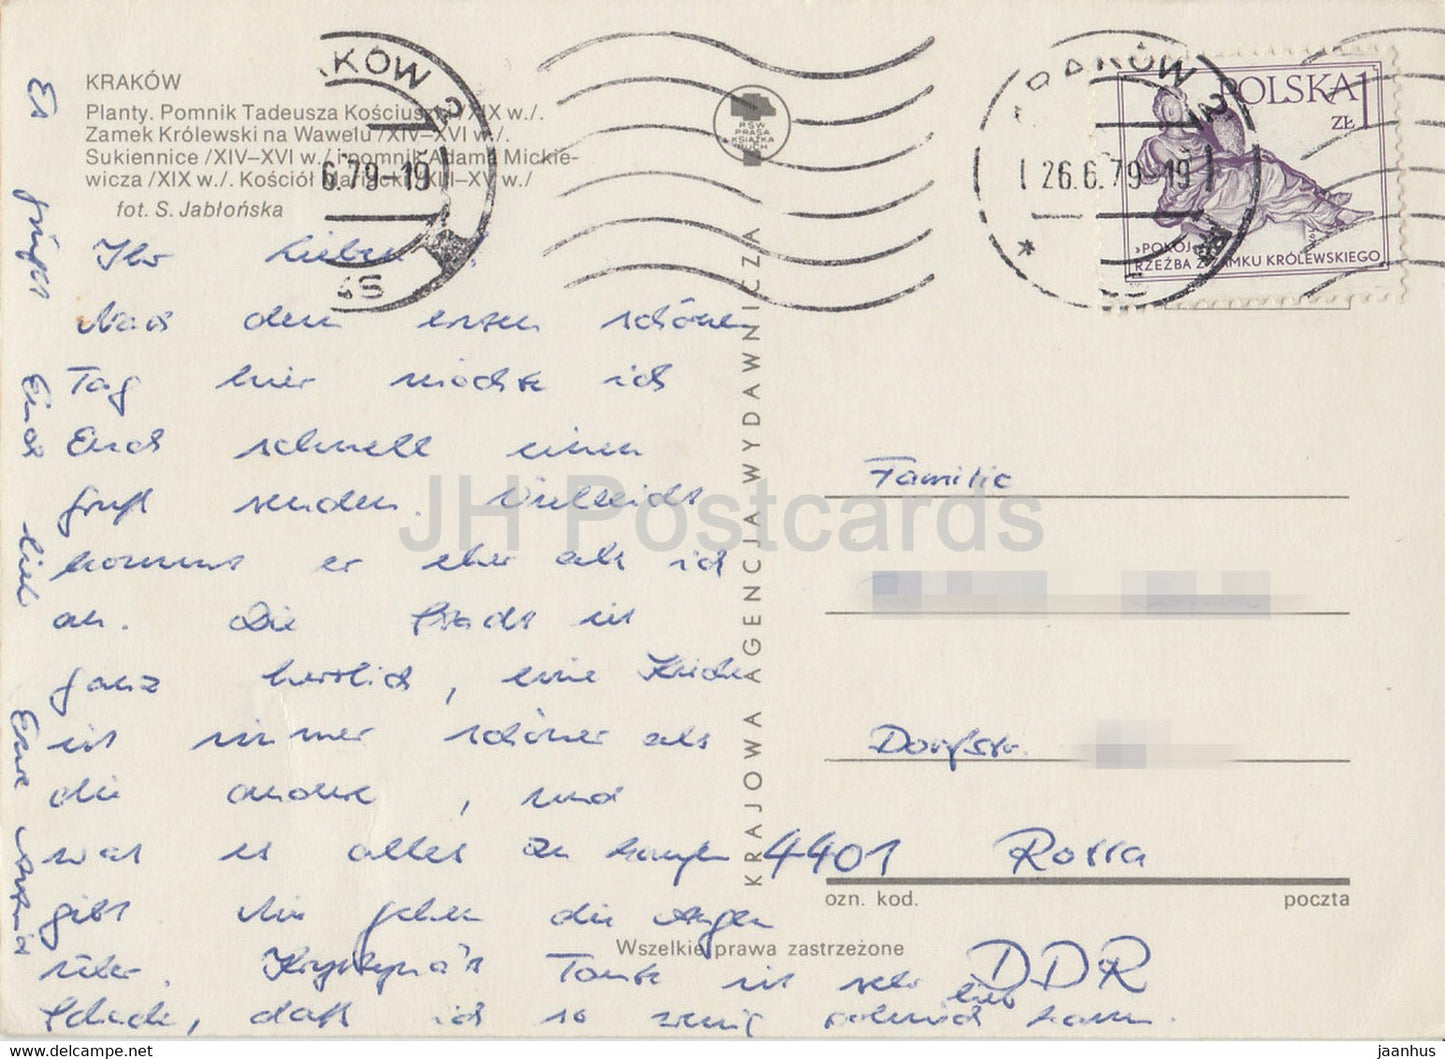 KRAKÓW
Planty. Pomnik Tadeusza Kościuszki /XIX w./.
Zamek Królewski na Wawelu /XIV–XVI w./.
Sukiennice /XIV–XVI w./ i pomnik Adama Mickie-
wicza /XIX w./. Kościół Mariacki /XIII–XV w./
fot. S. Jabłońska
KRAKÓW 2
6.79-19
RSW
PRASA
KSIĄŻKA
RUCH
KRAKÓW 2
26.6.79-19
POLSKA 1
ZŁ
›POKÓJ‹
RZEŹBA Z ZAMKU KRÓLEWSKIEGO
Ihr Lieben!
Nach dem ersten schönen
Tag hier möchte ich
Euch schnell einen
Gruß senden. Vielleicht
kommt er eher als ich
an. Die Stadt ist
ganz herrlich, eine Kirche
ist immer schöner als
die andere, und
was es alles zu kaufen
gibt. Mir gehen die Augen
über. Krystyna's Tante ist sehr lieb
Schade, daß ich so wenig polnisch kann.
Es grüßt Euch lieb Eure
KRAJOWA AGENCJA WYDAWNICZA
Familie
Dorfstr.
4401 Rossa
ozn. kod. poczta
DDR
Wszelkie prawa zastrzeżone
JH Postcards
https://www.jhpostcards.com
jaanhus